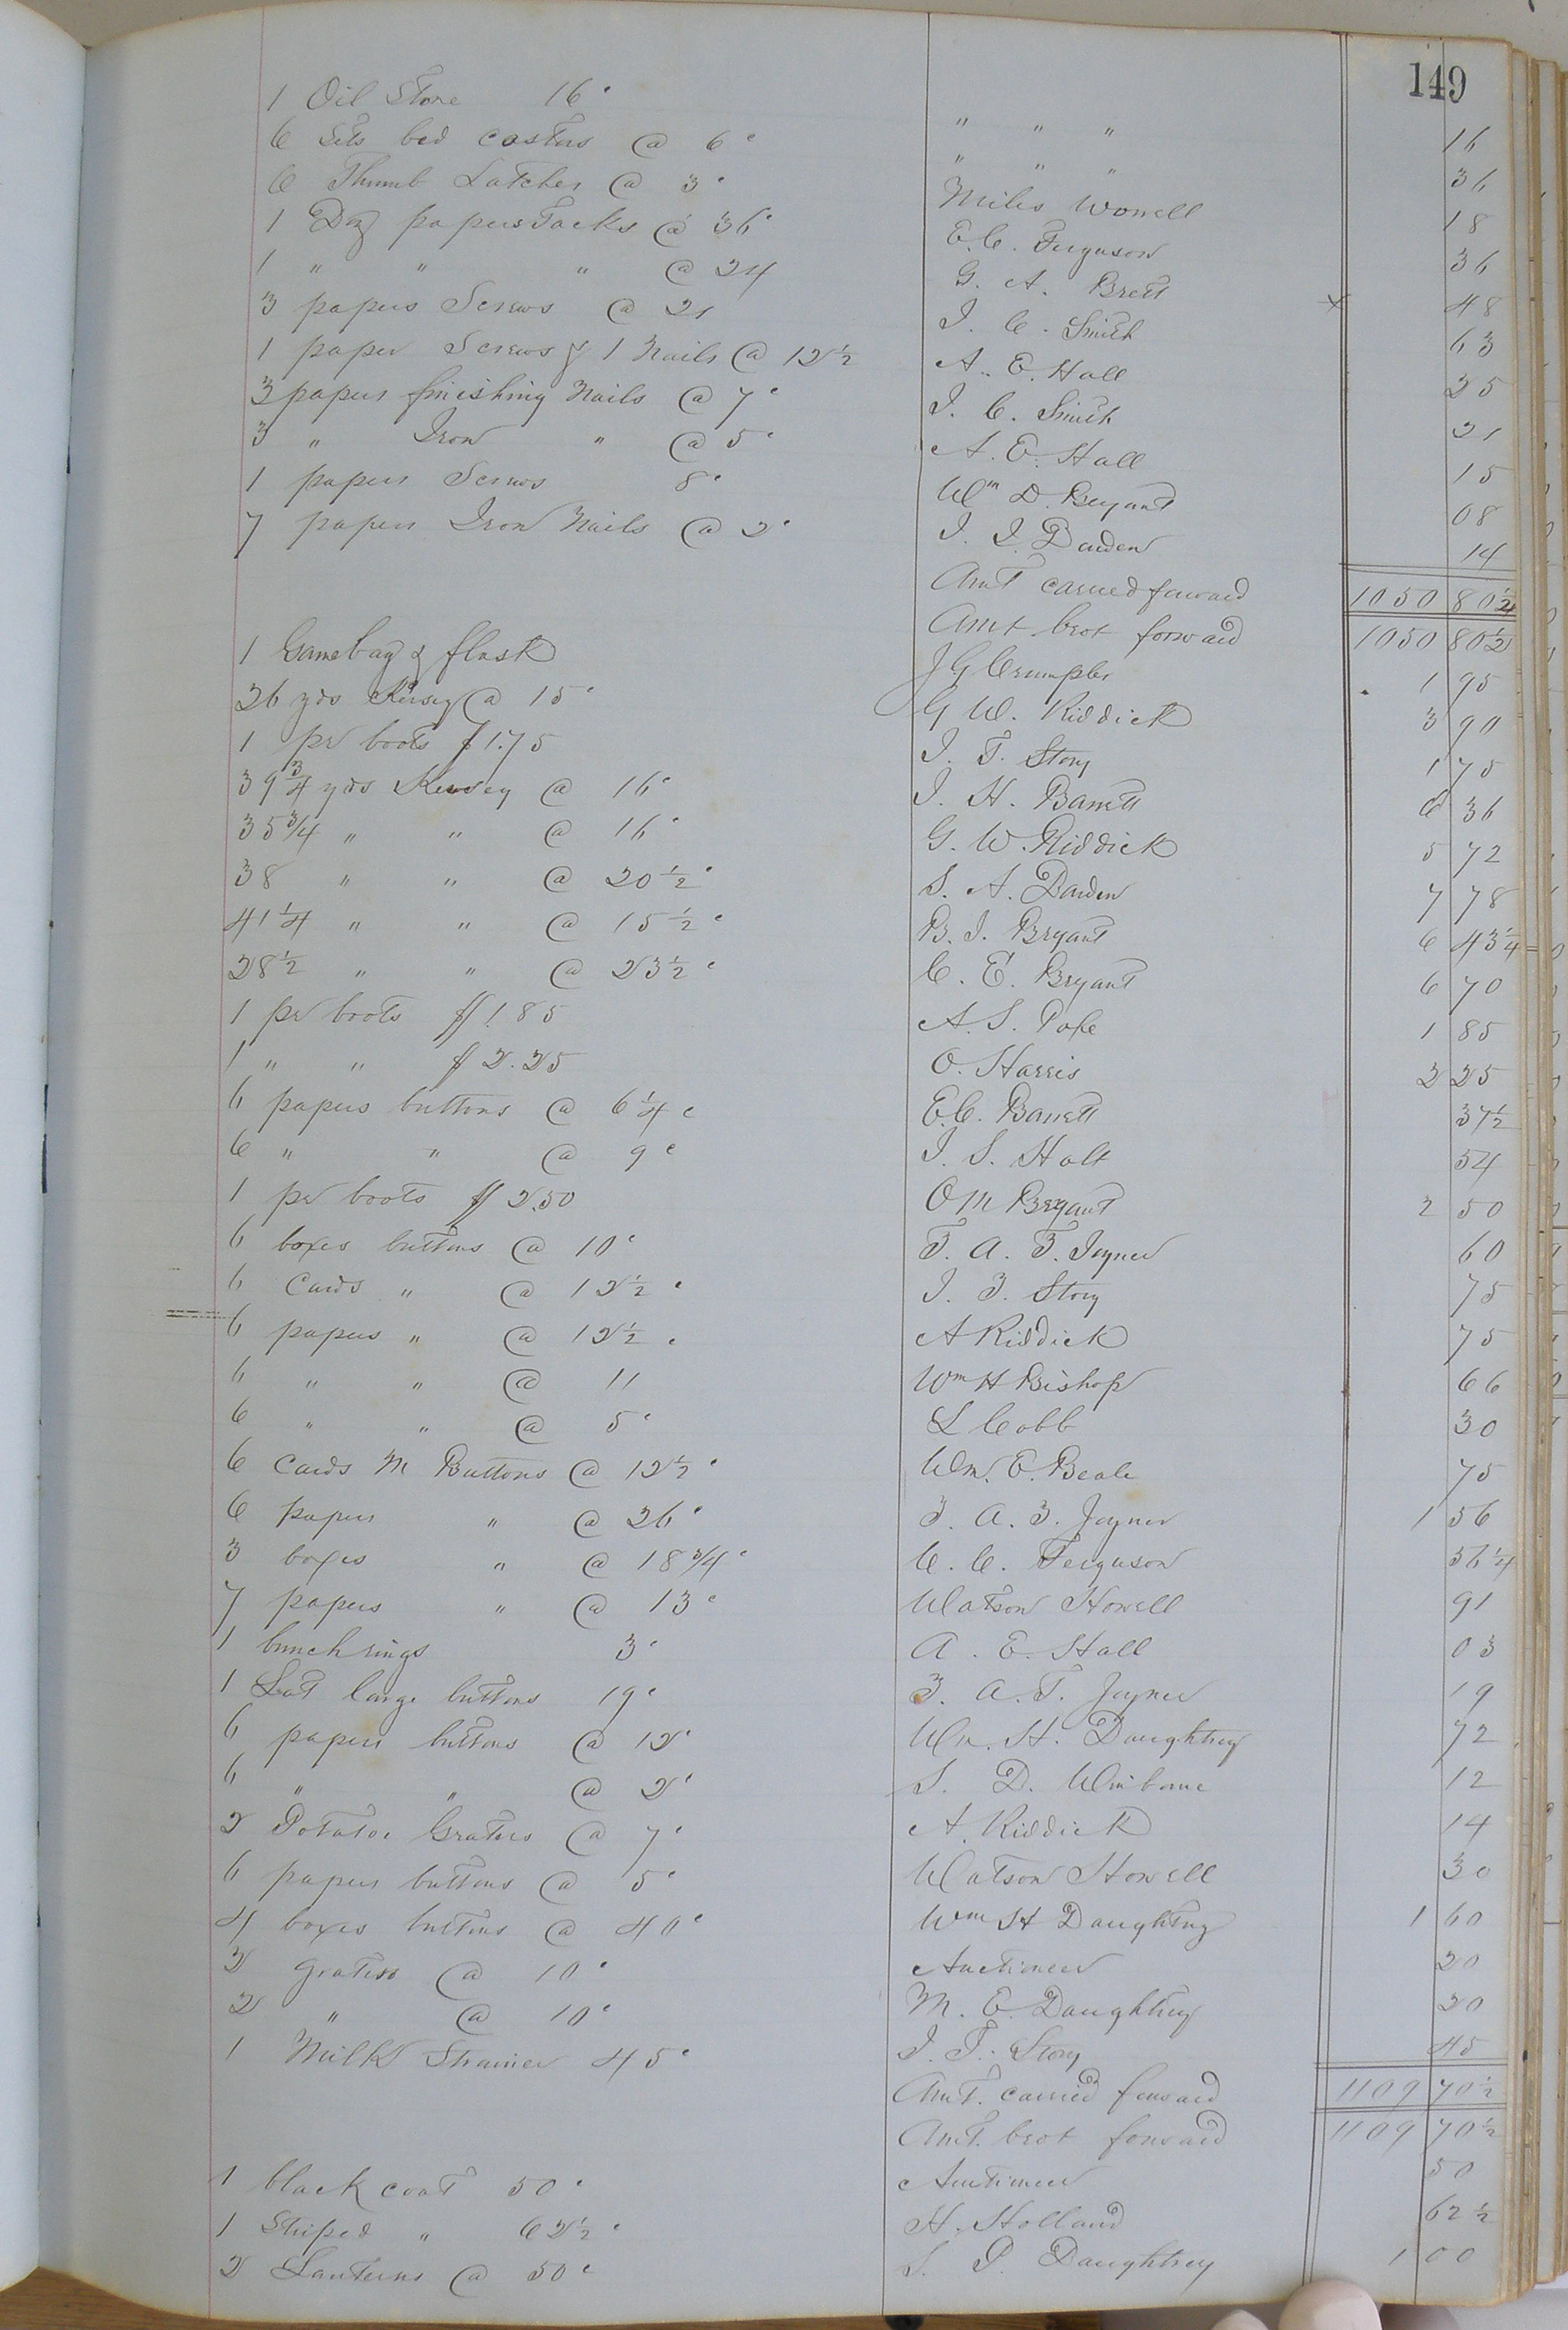 149
1 Oil Stone 16c " " " 16
6 Sets bed castors @ 6c " " " 36
6 Thumb Latches @ 3c Miles Worrell 18
1 Doz papers Tacks @ 36c E. C. Ferguson 36
1 " " " @ 24 G. A. Brett x 48
3 papers Screws @ 21 J. C. Smith 63
1 paper Screws & 1 Nails @ 12½ A. E. Hall 25
3 papers finishing Nails @ 7c J. C. Smith 21
3 " Iron " @ 5c A. E. Hall 15
1 papers Screws 8c Wm D. Bryant 08
7 papers Iron Nails @ 2c J. J. Darden 14
Amt carried forward 1050 80½
Amt brot forward 1050 80½
1 Gamebag & flask J G Crumpler 1 95
26 yds Kersey @ 15c G W. Riddick 3 90
1 pr boots $1.75 J. T. Story 1 75
39¾ yds Kersey @ 16c J. H. Barrett 6 36
35¾ " " @ 16c G. W. Riddick 5 72
38 " " @ 20½c S. A. Darden 7 78
41¼ " " @ 15½c B. J. Bryant 6 43¼
28½ " " @ 23½c C. E. Bryant 6 70
1 pr boots $1.85 A. S. Pope 1 85
1 " " $2.25 O. Harris 2 25
6 papers buttons @ 6¼c E. C. Barrett 37½
6 " " @ 9c J. S. Holt 54
1 pr boots $2.50 O M Bryant 2 50
6 boxes buttons @ 10c T. A. T. Joyner 60
6 Cards " @ 12½c J. T. Story 75
6 papers " @ 12½c A Riddick 75
6 " " @ 11 Wm H Bishop 66
6 " " @ 5c L Cobb 30
6 Cards M Buttons @ 12½c Wm. E. Beale 75
6 papers " @ 26c T. A. T. Joyner 1 56
3 boxes " @ 18¾c C. C. Ferguson 56¼
7 papers " @ 13c Watson Howell 91
1 bunch rings 3c A. E. Hall 03
1 Lot large buttons 19c T. A. T. Joyner 19
6 papers buttons @ 12c Wm. H. Daughtrey 72
6 " " @ 2c S. D. Winborne 12
2 Potatoe Graters @ 7c A. Riddick 14
6 papers buttons @ 5c Watson Howell 30
4 boxes buttons @ 40c Wm H Daughtrey 1 60
2 Graters @ 10c Auctioneer 20
2 " @ 10c M. E. Daughtrey 20
1 Milk Strainer 45c J. T. Story 45
Amt. carried forward 1109 70½
Amt. brot forward 1109 70½
1 black coat 50c Auctioneer 50
1 Striped " 62½c H. Holland 62½
2 Lanterns @ 50c S. P. Daughtrey 1 00